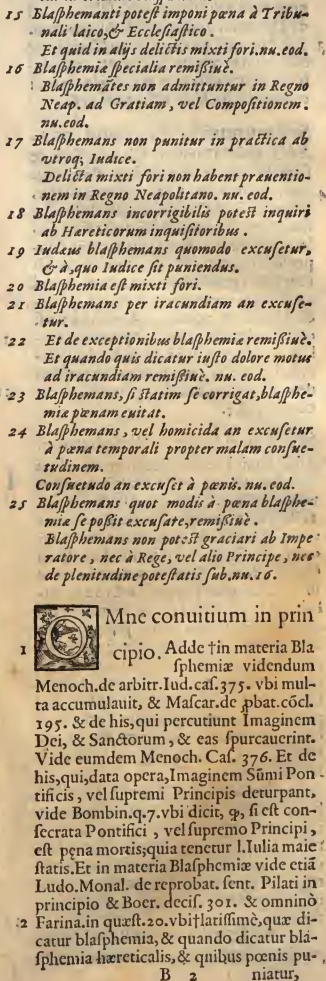 15 Blasphemanti potest imponi pœna à Tribu-
nali laico, & Ecclesiastico.
Et quid in alijs delictis mixti fori.nu.eod.
16 Blasphemiæ specialia remißiuè.
Blasphemãtes non admittuntur in Regno
Neap. ad Gratiam, vel Compositionem.
nu.eod.
17 Blasphemans non punitur in practica ab
vtroq; Iudice.
Delicta mixti fori non habent præuentio-
nem in Regno Neapolitano. nu. eod.
18 Blasphemans incorrigibilis potest inquiri
ab Hæreticorum inquisitoribus.
19 Iudæus blasphemans quomodo excusetur,
& à,quo Iudice sit puniendus.
20 Blasphemia est mixti fori.
21 Blasphemans per iracundiam an excuse-
tur.
22 Et de exceptionibus blasphemiæ remißiuè.
Et quando quis dicatur iusto dolore motus
ad iracundiam remißiuè. nu. eod.
23 Blasphemans, si statim se corrigat,blasphe-
miæ pœnam euitat.
24 Blasphemans, vel homicida an excusetur
à pœna temporali propter malam consue-
tudinem.
Consuetudo an excuset à pœnis. nu. eod.
25 Blasphemans quot modis à pœna blasphe-
miæ se poßit excusare,remißiuè.
Blasphemans non potest graciari ab Impe
ratore, nec à Rege, vel alio Principe, nec
de plenitudine potestatis sub.nu.16.
OMne conuitium in prin
1 cipio. Adde †in materia Bla
sphemiæ videndum
Menoch.de arbitr.Iud.cas.375. vbi mul-
ta accumulauit, & Mascar.de ꝓbat.cócl.
195. & de his,qui percutiunt Imaginem
Dei, & Sanctorum, & eas spurcauerint.
Vide eumdem Menoch. Cas. 376. Et de
his,qui,data opera,Imaginem Sũmi Pon-
tificis, vel supremi Principis deturpant,
vide Bombin.q.7.vbi dicit, ꝙ, si est con-
secrata Pontifici, vel supremo Principi,
est pęna mortis;quia tenetur l.Iulia maie
statis.Et in materia Blasphemiæ vide etiã
Ludo.Monal. de reprobat. sent. Pilati in
principio & Boer. decis. 301. & omninò
2 Farina.in quæst.20.vbi†latissimè,quæ di-
catur blasphemia,& quando dicatur bla-
sphemia hæreticalis,& quibus pœnis pu-
B 2 niatur,